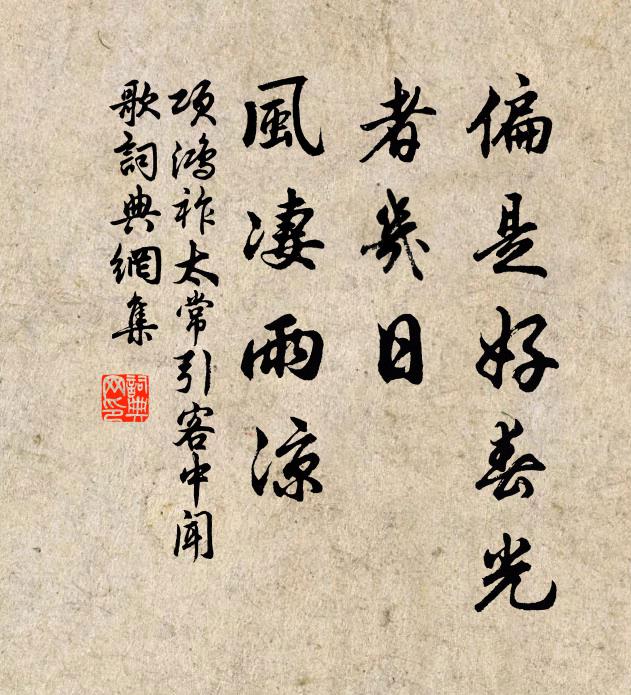 偏是好春光
者幾日
風淒雨涼
項鴻祚太常引客中聞
歌詞典網集
詞典
网印